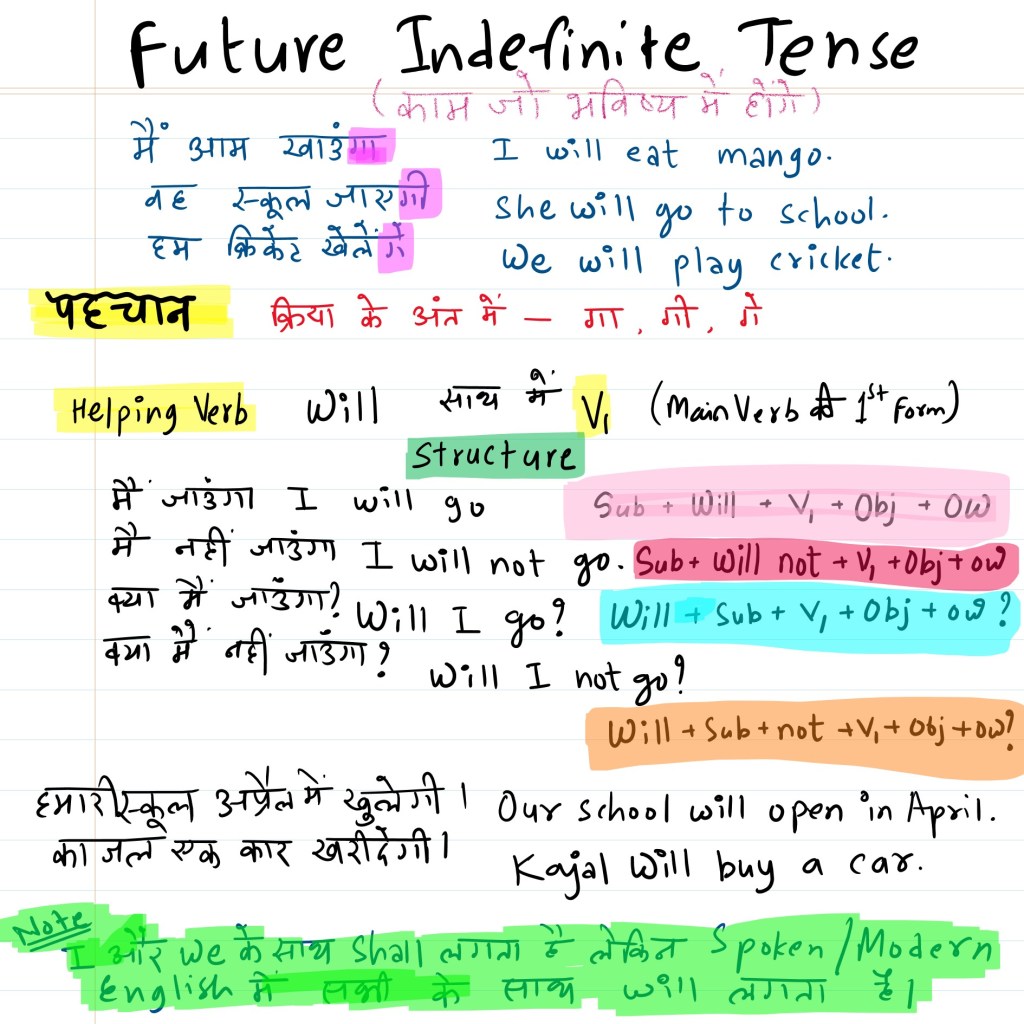 Future Indefinite Tense
(काम जो भविष्य में होंगे)
मैं आम खाउंगा I will eat mango.
वह स्कूल जाएगी She will go to school.
हम क्रिकेट खेलेंगे We will play cricket.
पहचान क्रिया के अंत में – गा, गी, गे
Helping Verb Will साथ में V1 (Main Verb का 1st Form)
Structure
मैं जाउंगा I will go Sub + Will + V1 + Obj + OW
मैं नहीं जाउंगा I will not go. Sub + Will not + V1 + Obj + ow
क्या मैं जाउँगा? Will I go? Will + Sub + V1 + Obj + ow?
क्या मैं नहीं जाउंगा? Will I not go?
Will + Sub + not + V1 + Obj + ow?
हमारी स्कूल अप्रैल में खुलेगी। Our school will open in April.
काजल एक कार खरीदेगी। Kajal Will buy a car.
Note
I और We के साथ Shall लगता है लेकिन Spoken/Modern
English में सभी के साथ will लगता है।